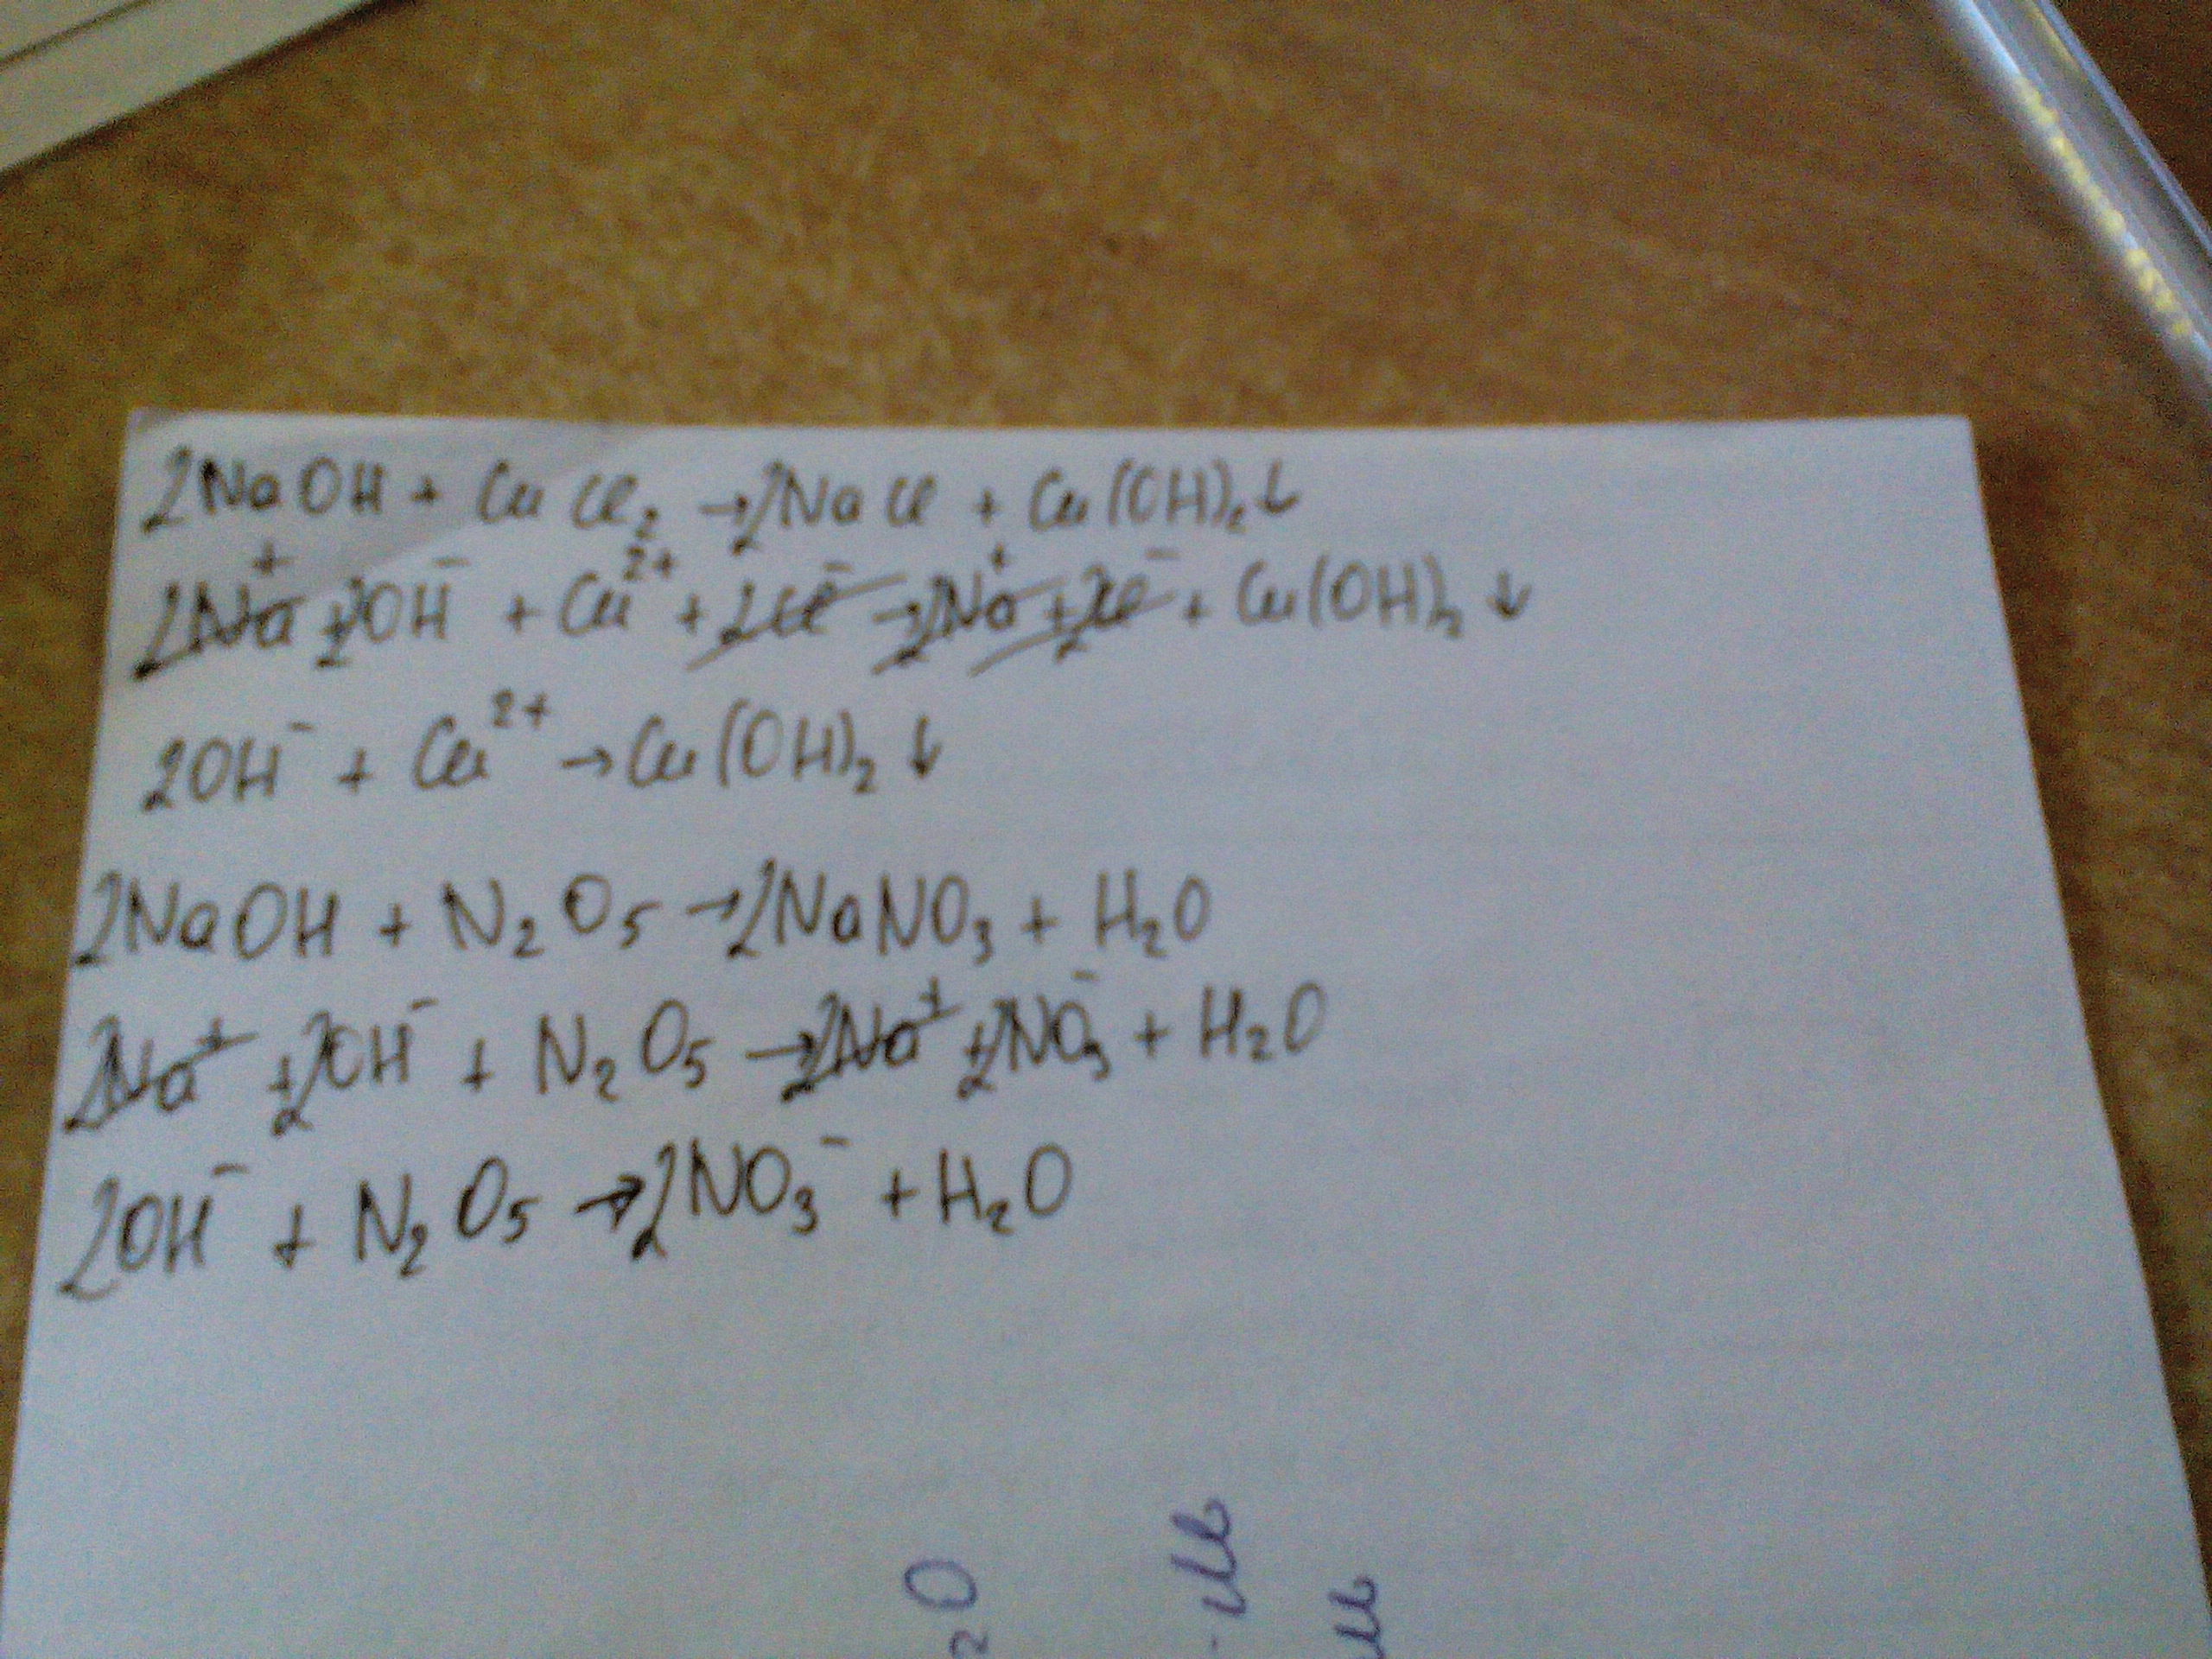 2NaOH + CuCl₂ → 2NaCl + Cu(OH)₂↓
2Na⁺ + 2OH⁻ + Cu²⁺ + 2Cl⁻ → 2Na⁺ + 2Cl⁻ + Cu(OH)₂ ↓
2OH⁻ + Cu²⁺ → Cu(OH)₂ ↓
2NaOH + N₂O₅ → 2NaNO₃ + H₂O
2Na⁺ + 2OH⁻ + N₂O₅ → 2Na⁺ + 2NO₃⁻ + H₂O
2OH⁻ + N₂O₅ → 2NO₃⁻ + H₂O
₂O